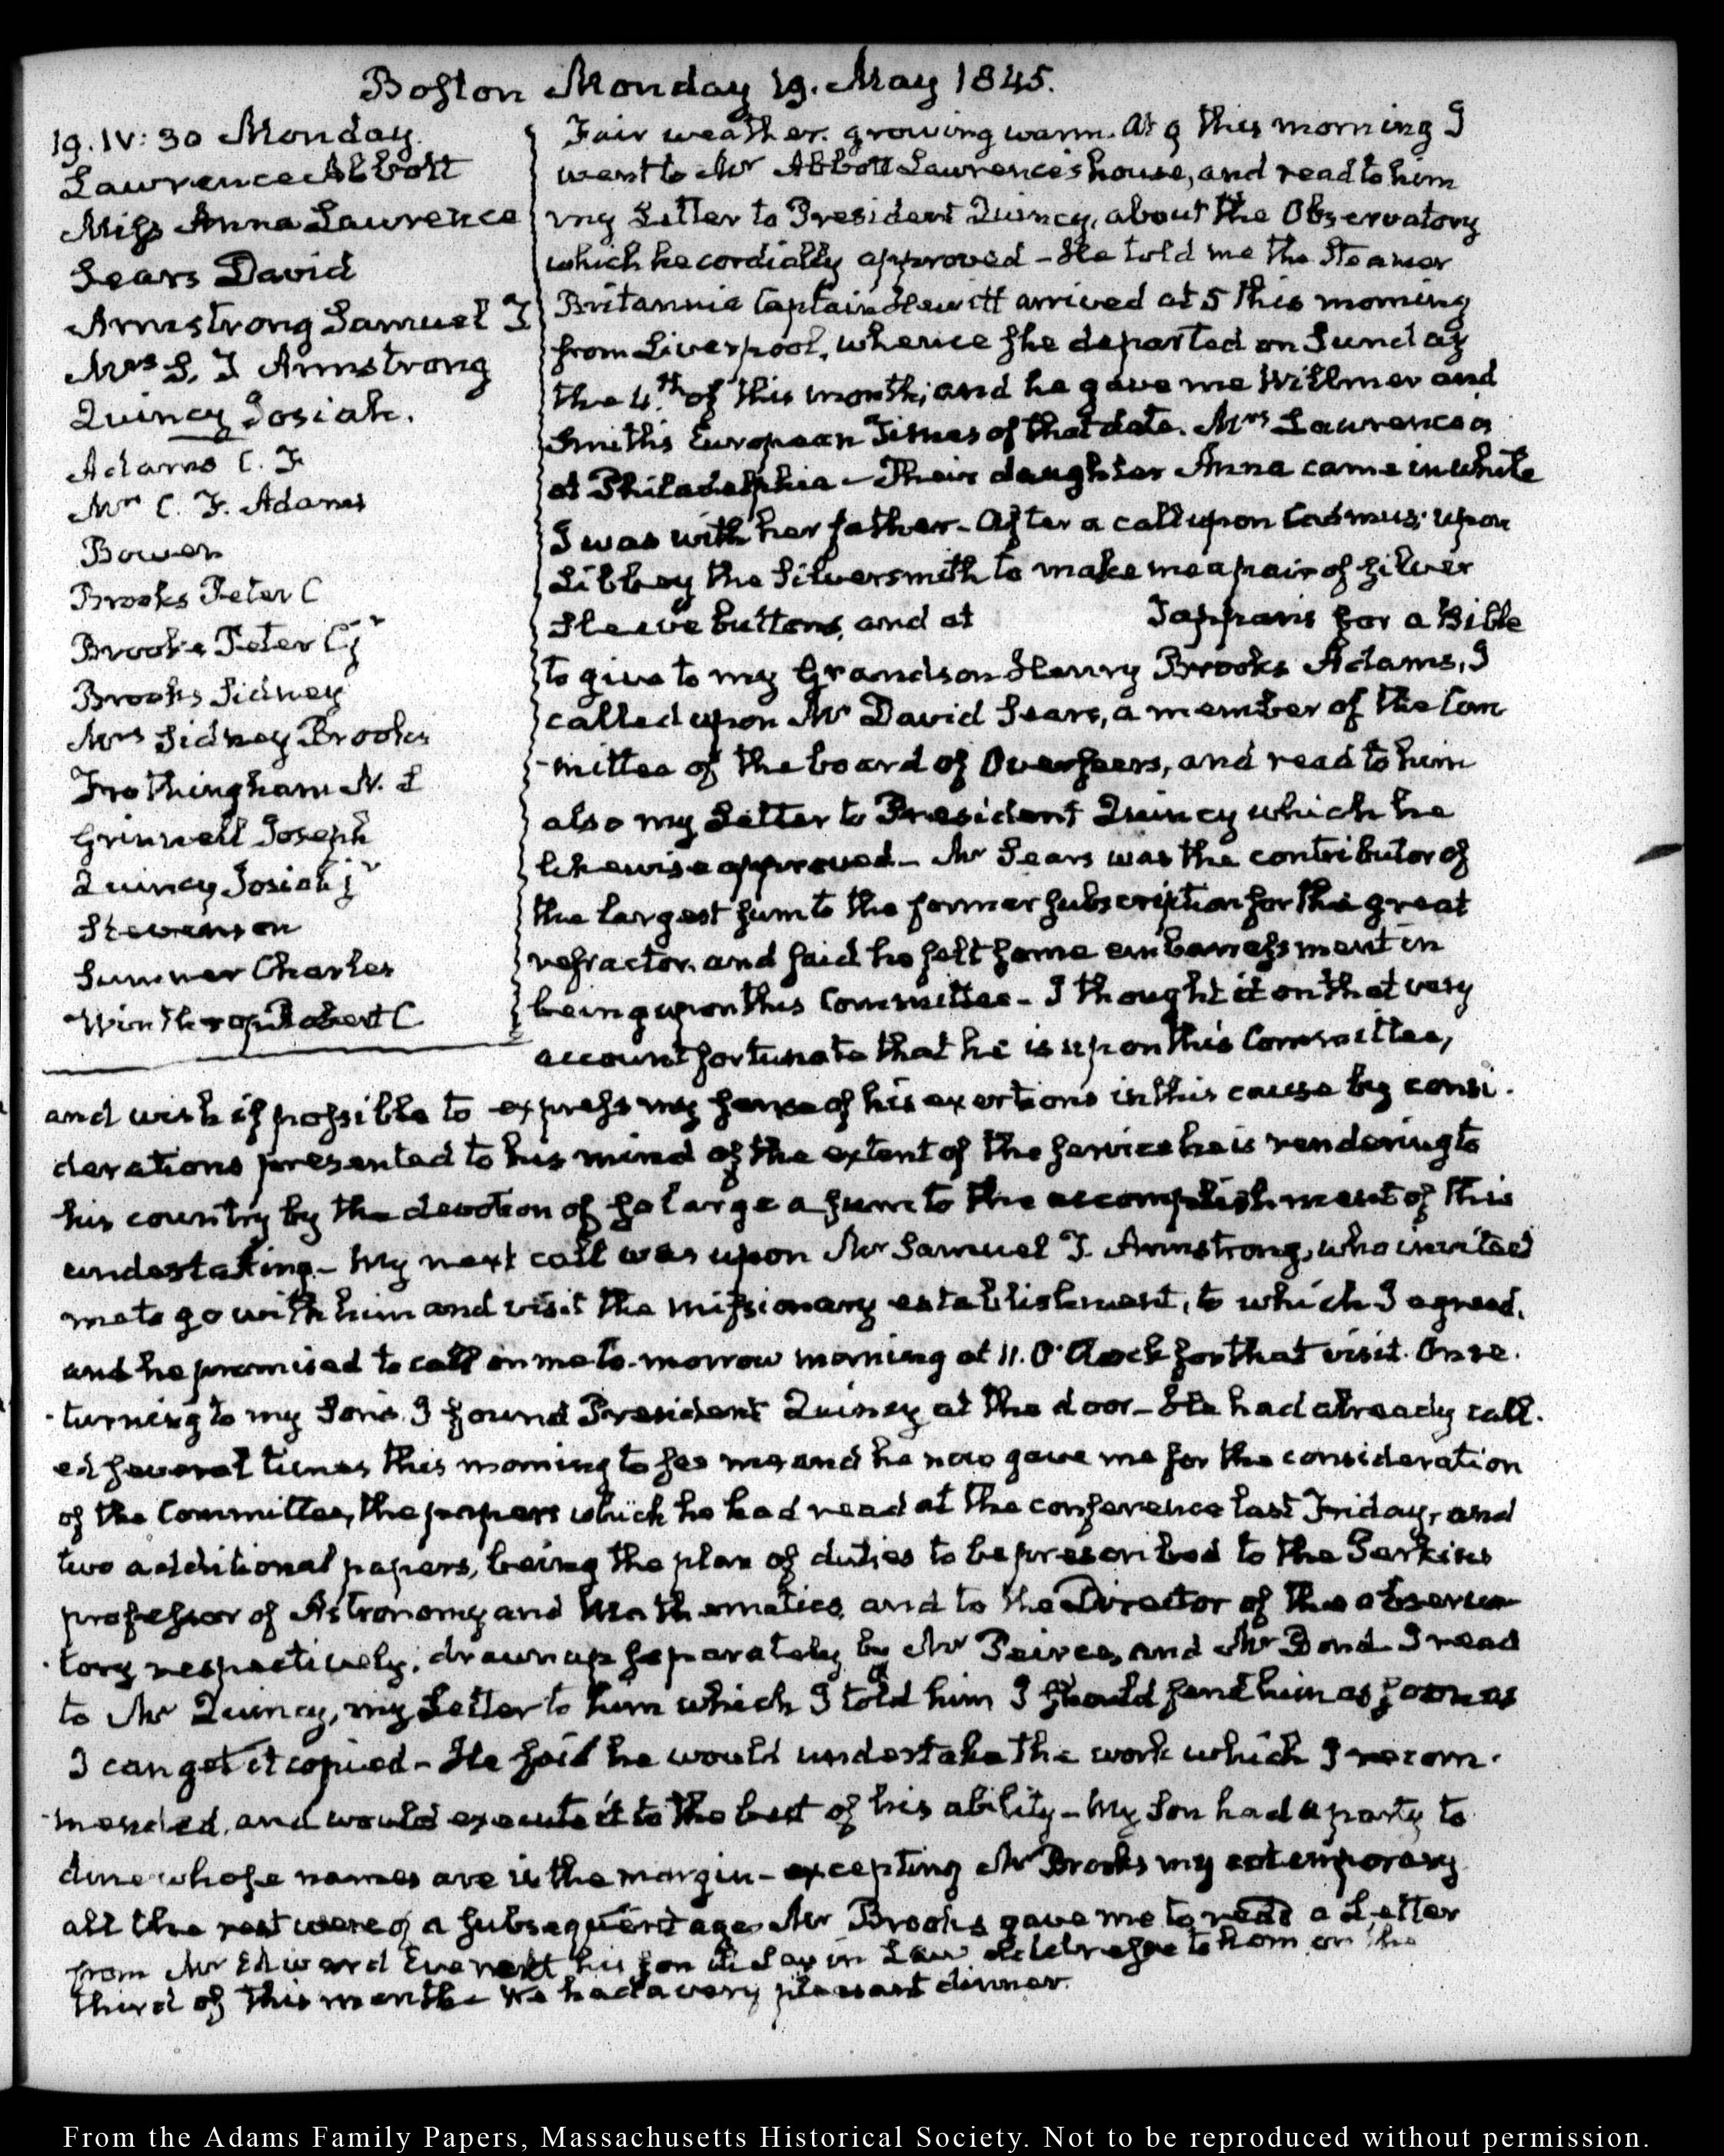 Boston Monday 19. May 1845.
19. IV: 30 Monday.
Lawrence Abbott
Miss Anna Lawrence
Sears David
Armstrong Samuel T
Mrs S. T Armstrong
Quincy Josiah.
Adams C. F
Mrs C. F. Adams
Bowen
Brooks Peter C
Brooks Peter C jr
Brooks Sidney
Mrs Sidney Brooks
Frothingham N. L
Grinnell Joseph
Quincy Josiah jr
Stevenson
Sumner Charles
Winthrop Robert C
Fair weather. growing warm. At 9 this morning I
went to Mr Abbott Lawrence's house, and read to him
my Letter to President Quincy, about the Observatory
which he cordially approved – He told me the Steamer
Britannia Captain Hewitt arrived at 5 this morning
from Liverpool, whence she departed on Sunday
the 4th of this month; and he gave me Willmer and
Smith's European Times of that date. Mrs Lawrence is
at Philadelphia – Their daughter Anna came in while
I was with her father – After a call upon Cadmus; upon
Libbey the Silversmith to make me a pair of silver
sleeve buttons, and at Tappan's for a Bible
to give to my Grandson Henry Brooks Adams, I
called upon Mr David Sears, a member of the Com
-mittee of the board of Overseers, and read to him
also my Letter to President Quincy which he
likewise approved – Mr Sears was the contributor of
the largest sum to the former subscription for the great
refractor, and said he felt some embarrassment in
being upon this Committee – I thought it on that very
account fortunate that he is upon this Committee,
and wish if possible to express my sense of his exertions in this cause by consi-
derations presented to his mind of the extent of the service he is rendering to
his country by the devotion of so large a sum to the accomplishment of this
undertaking – My next call was upon Mr Samuel T. Armstrong, who invited
me to go with him and visit the missionary establishment, to which I agreed,
and he promised to call on me to-morrow morning at 11. O'Clock for that visit. On re-
-turning to my Son's I found President Quincy at the door – He had already call-
ed several times this morning to see me and he now gave me for the consideration
of the Committee, the papers which he had read at the conference last Friday, and
two additional papers, being the plan of duties to be prescribed to the Perkins
professor of Astronomy and Mathematics, and to the Director of the observa-
-tory respectively; drawn up separately by Mr Peirce, and Mr Bond. I read
to Mr Quincy, my Letter to him which I told him I should send him as soon as
I can get it copied – He said he would undertake the work which I recom-
-mended, and would execute it to the best of his ability – My Son had a party to
dine whose names are in the margin – excepting Mr Brooks my cotemporary
all the rest were of a subsequent age. Mr Brooks gave me to read a Letter
from Mr Edward Everett his son in Law to him on the
third of this month – We had a very pleasant dinner.
From the Adams Family Papers, Massachusetts Historical Society. Not to be reproduced without permission.